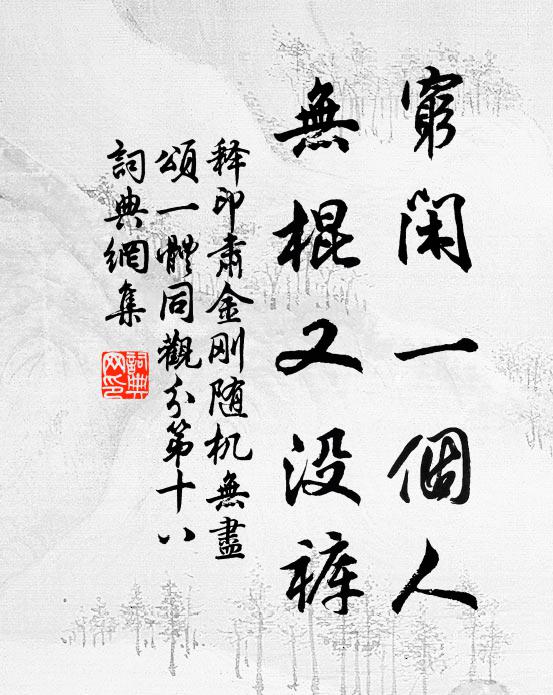 窮閑一個人
無棍又没褲
释印肅金刚随机無盡
頌一體同觀分第十八
詞典網集
詞典網印